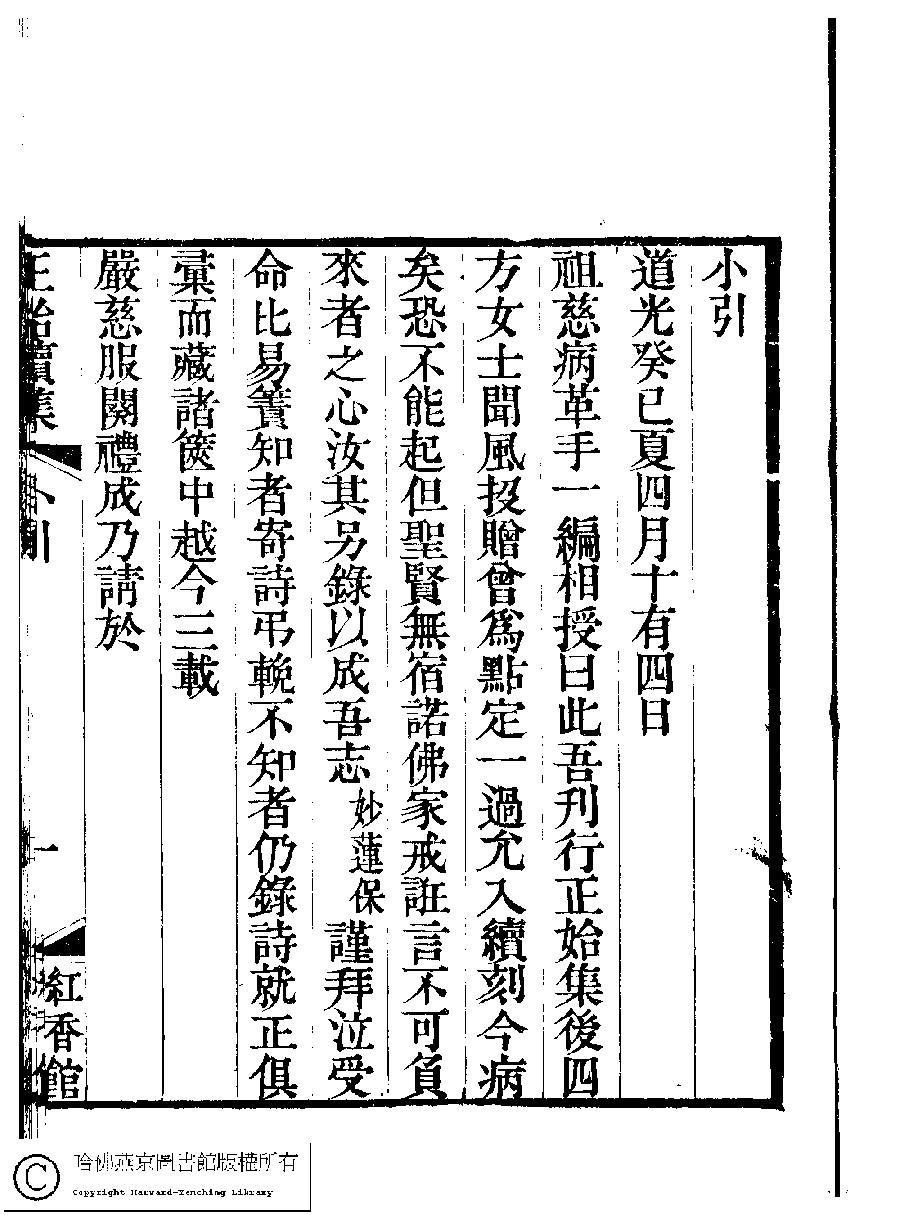 小引
道光癸巳夏四月十有四日
祖慈病革手一編相授曰此吾刋行正始集後四
方女士聞風投贈曾為點定一過允入續刻今病
矣恐不能起但聖賢無宿諾佛家戒誑言不可負
來者之心汝其另錄以成吾志妙蓮保謹拜泣受
命比易簀知者寄詩弔輓不知者仍錄詩就正俱
彙而藏諸篋中越今三載
嚴慈服闋禮成乃請於
正始續集 小引 一 紅香館
哈佛燕京圖書館版權所有
Copyright Harvard-Yenching Library